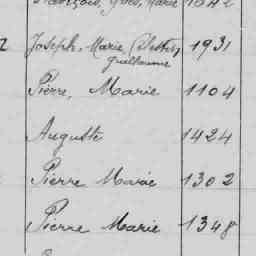 François, Yves, Marie 1042
2 Joseph, Marie, 1931
Guillaume
Pierre, Marie 1104
Auguste 1424
Pierre Marie 1302
Pierre Marie 1348